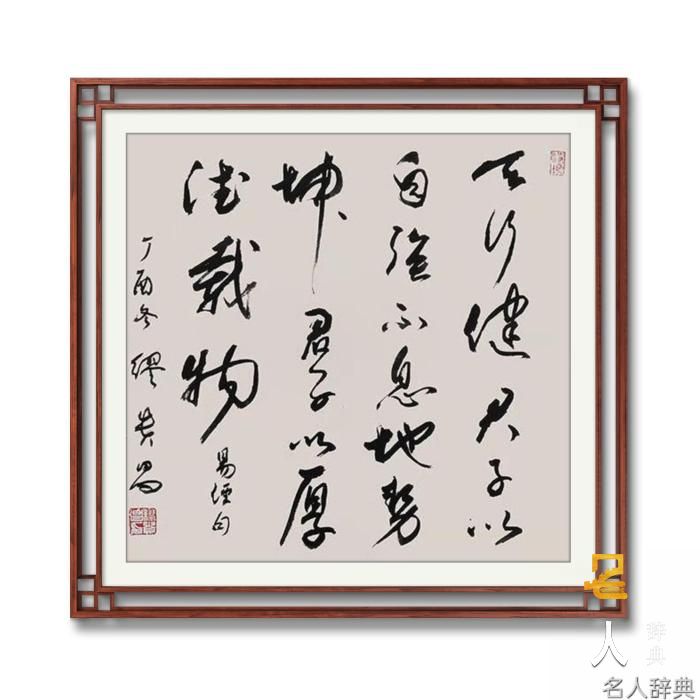 天行健君子以
自强不息地势
坤君子以厚
德载物
易经句
丁酉冬 缪贵昌
名人辞典
名人辞典